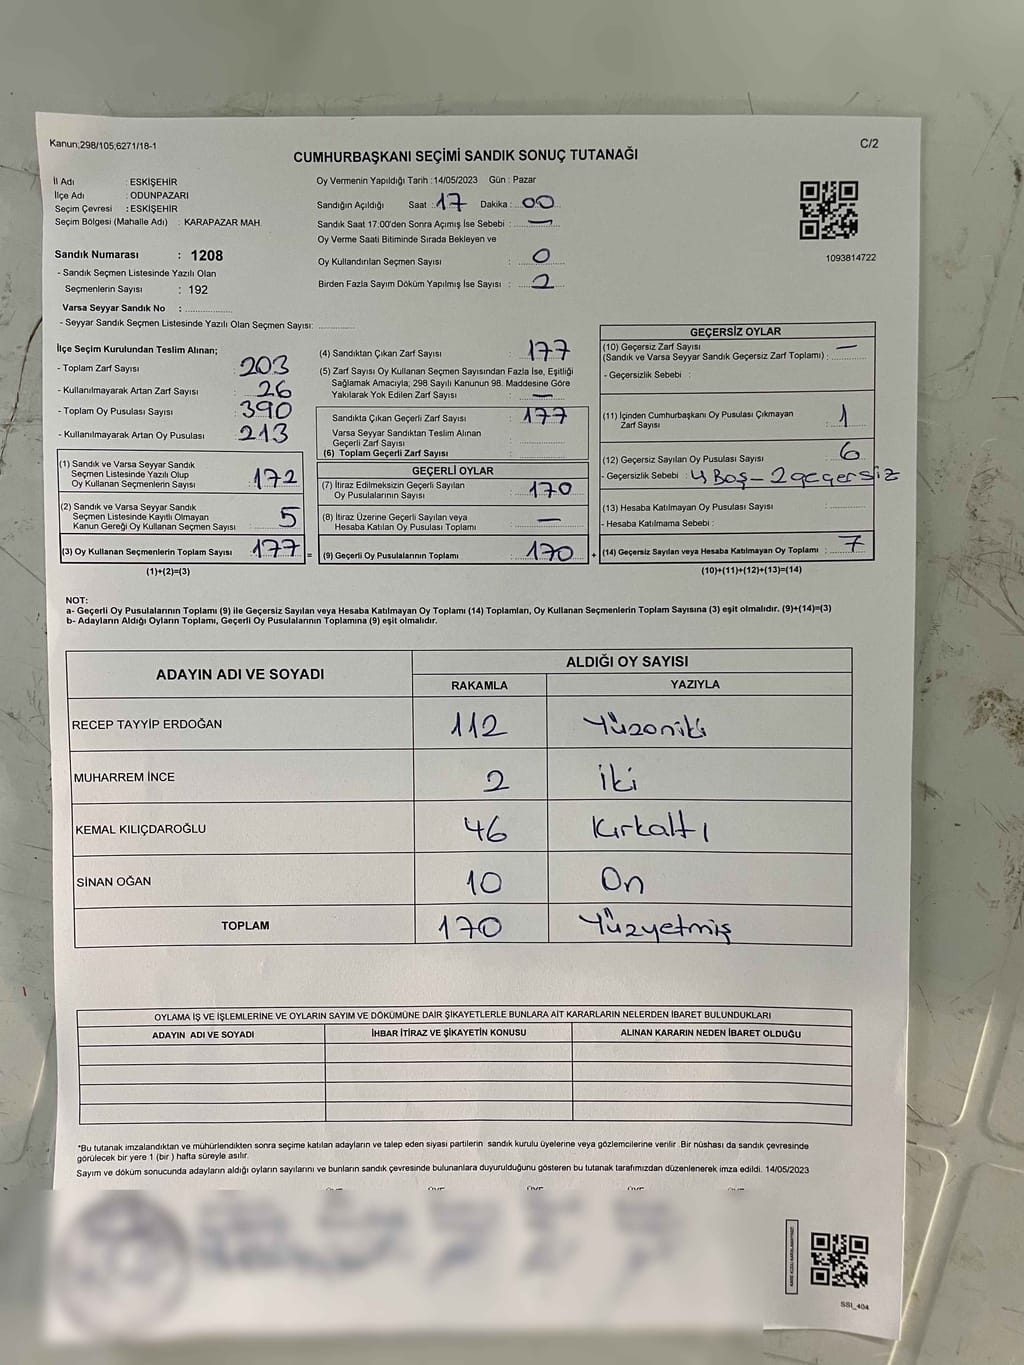 Kanun;298/105,6271/18-1
C/2
CUMHURBAŞKANI SEÇİMİ SANDIK SONUÇ TUTANAĞI
İl Adı : ESKİŞEHİR
İlçe Adı : ODUNPAZARI
Seçim Çevresi : ESKİŞEHİR
Seçim Bölgesi (Mahalle Adı) : KARAPAZAR MAH.
Sandık Numarası : 1208
- Sandık Seçmen Listesinde Yazılı Olan
Seçmenlerin Sayısı : 192
Varsa Seyyar Sandık No :
- Seyyar Sandık Seçmen Listesinde Yazılı Olan Seçmen Sayısı:
Oy Vermenin Yapıldığı Tarih :14/05/2023 Gün : Pazar
Sandığın Açıldığı Saat : 17 Dakika : 00
Sandık Saat 17:00'den Sonra Açımış İse Sebebi : —
Oy Verme Saati Bitiminde Sırada Bekleyen ve
Oy Kullandırılan Seçmen Sayısı : 0
Birden Fazla Sayım Döküm Yapılmış İse Sayısı : 2
1093814722
İlçe Seçim Kurulundan Teslim Alınan;
- Toplam Zarf Sayısı : 203
- Kullanılmayarak Artan Zarf Sayısı : 26
- Toplam Oy Pusulası Sayısı : 390
- Kullanılmayarak Artan Oy Pusulası : 213
(1) Sandık ve Varsa Seyyar Sandık
Seçmen Listesinde Yazılı Olup
Oy Kullanan Seçmenlerin Sayısı : 172
(2) Sandık ve Varsa Seyyar Sandık
Seçmen Listesinde Kayıtlı Olmayan
Kanun Gereği Oy Kullanan Seçmen Sayısı : 5
(3) Oy Kullanan Seçmenlerin Toplam Sayısı : 177 =
(1)+(2)=(3)
(4) Sandıktan Çıkan Zarf Sayısı : 177
(5) Zarf Sayısı Oy Kullanan Seçmen Sayısından Fazla İse, Eşitliği
Sağlamak Amacıyla, 298 Sayılı Kanunun 98. Maddesine Göre
Yakılarak Yok Edilen Zarf Sayısı : —
Sandıkta Çıkan Geçerli Zarf Sayısı : 177
Varsa Seyyar Sandıktan Teslim Alınan
Geçerli Zarf Sayısı
(6) Toplam Geçerli Zarf Sayısı :
GEÇERLİ OYLAR
(7) İtiraz Edilmeksizin Geçerli Sayılan
Oy Pusulalarının Sayısı : 170
(8) İtiraz Üzerine Geçerli Sayılan veya
Hesaba Katılan Oy Pusulası Toplamı : —
(9) Geçerli Oy Pusulalarının Toplamı : 170 +
GEÇERSİZ OYLAR
(10) Geçersiz Zarf Sayısı —
(Sandık ve Varsa Seyyar Sandık Geçersiz Zarf Toplamı) :
- Geçersizlik Sebebi :
(11) İçinden Cumhurbaşkanı Oy Pusulası Çıkmayan
Zarf Sayısı : 1
(12) Geçersiz Sayılan Oy Pusulası Sayısı : 6
- Geçersizlik Sebebi : 4 Boş - 2 geçersiz
(13) Hesaba Katılmayan Oy Pusulası Sayısı :
- Hesaba Katılmama Sebebi :
(14) Geçersiz Sayılan veya Hesaba Katılmayan Oy Toplamı : 7
(10)+(11)+(12)+(13)=(14)
NOT:
a- Geçerli Oy Pusulalarının Toplamı (9) ile Geçersiz Sayılan veya Hesaba Katılmayan Oy Toplamı (14) Toplamları, Oy Kullanan Seçmenlerin Toplam Sayısına (3) eşit olmalıdır. (9)+(14)=(3)
b- Adayların Aldığı Oyların Toplamı, Geçerli Oy Pusulalarının Toplamına (9) eşit olmalıdır.
ADAYIN ADI VE SOYADI
ALDIĞI OY SAYISI
RAKAMLA YAZIYLA
RECEP TAYYİP ERDOĞAN 112 Yüzoniki
MUHARREM İNCE 2 İki
KEMAL KILIÇDAROĞLU 46 Kırkaltı
SİNAN OĞAN 10 On
TOPLAM 170 Yüzyetmiş
OYLAMA İŞ VE İŞLEMLERİNE VE OYLARIN SAYIM VE DÖKÜMÜNE DAİR ŞİKAYETLERLE BUNLARA AİT KARARLARIN NELERDEN İBARET BULUNDUKLARI
ADAYIN ADI VE SOYADI İHBAR İTİRAZ VE ŞİKAYETİN KONUSU ALINAN KARARIN NEDEN İBARET OLDUĞU
*Bu tutanak imzalandıktan ve mühürlendikten sonra seçime katılan adayların ve talep eden siyasi partilerin sandık kurulu üyelerine veya gözlemcilerine verilir .Bir nüshası da sandık çevresinde
görülecek bir yere 1 (bir ) hafta süreyle asılır.
Sayım ve döküm sonucunda adayların aldığı oyların sayılarını ve bunların sandık çevresinde bulunanlara duyurulduğunu gösteren bu tutanak tarafımızdan düzenlenerek imza edildi. 14/05/2023
SSI_404